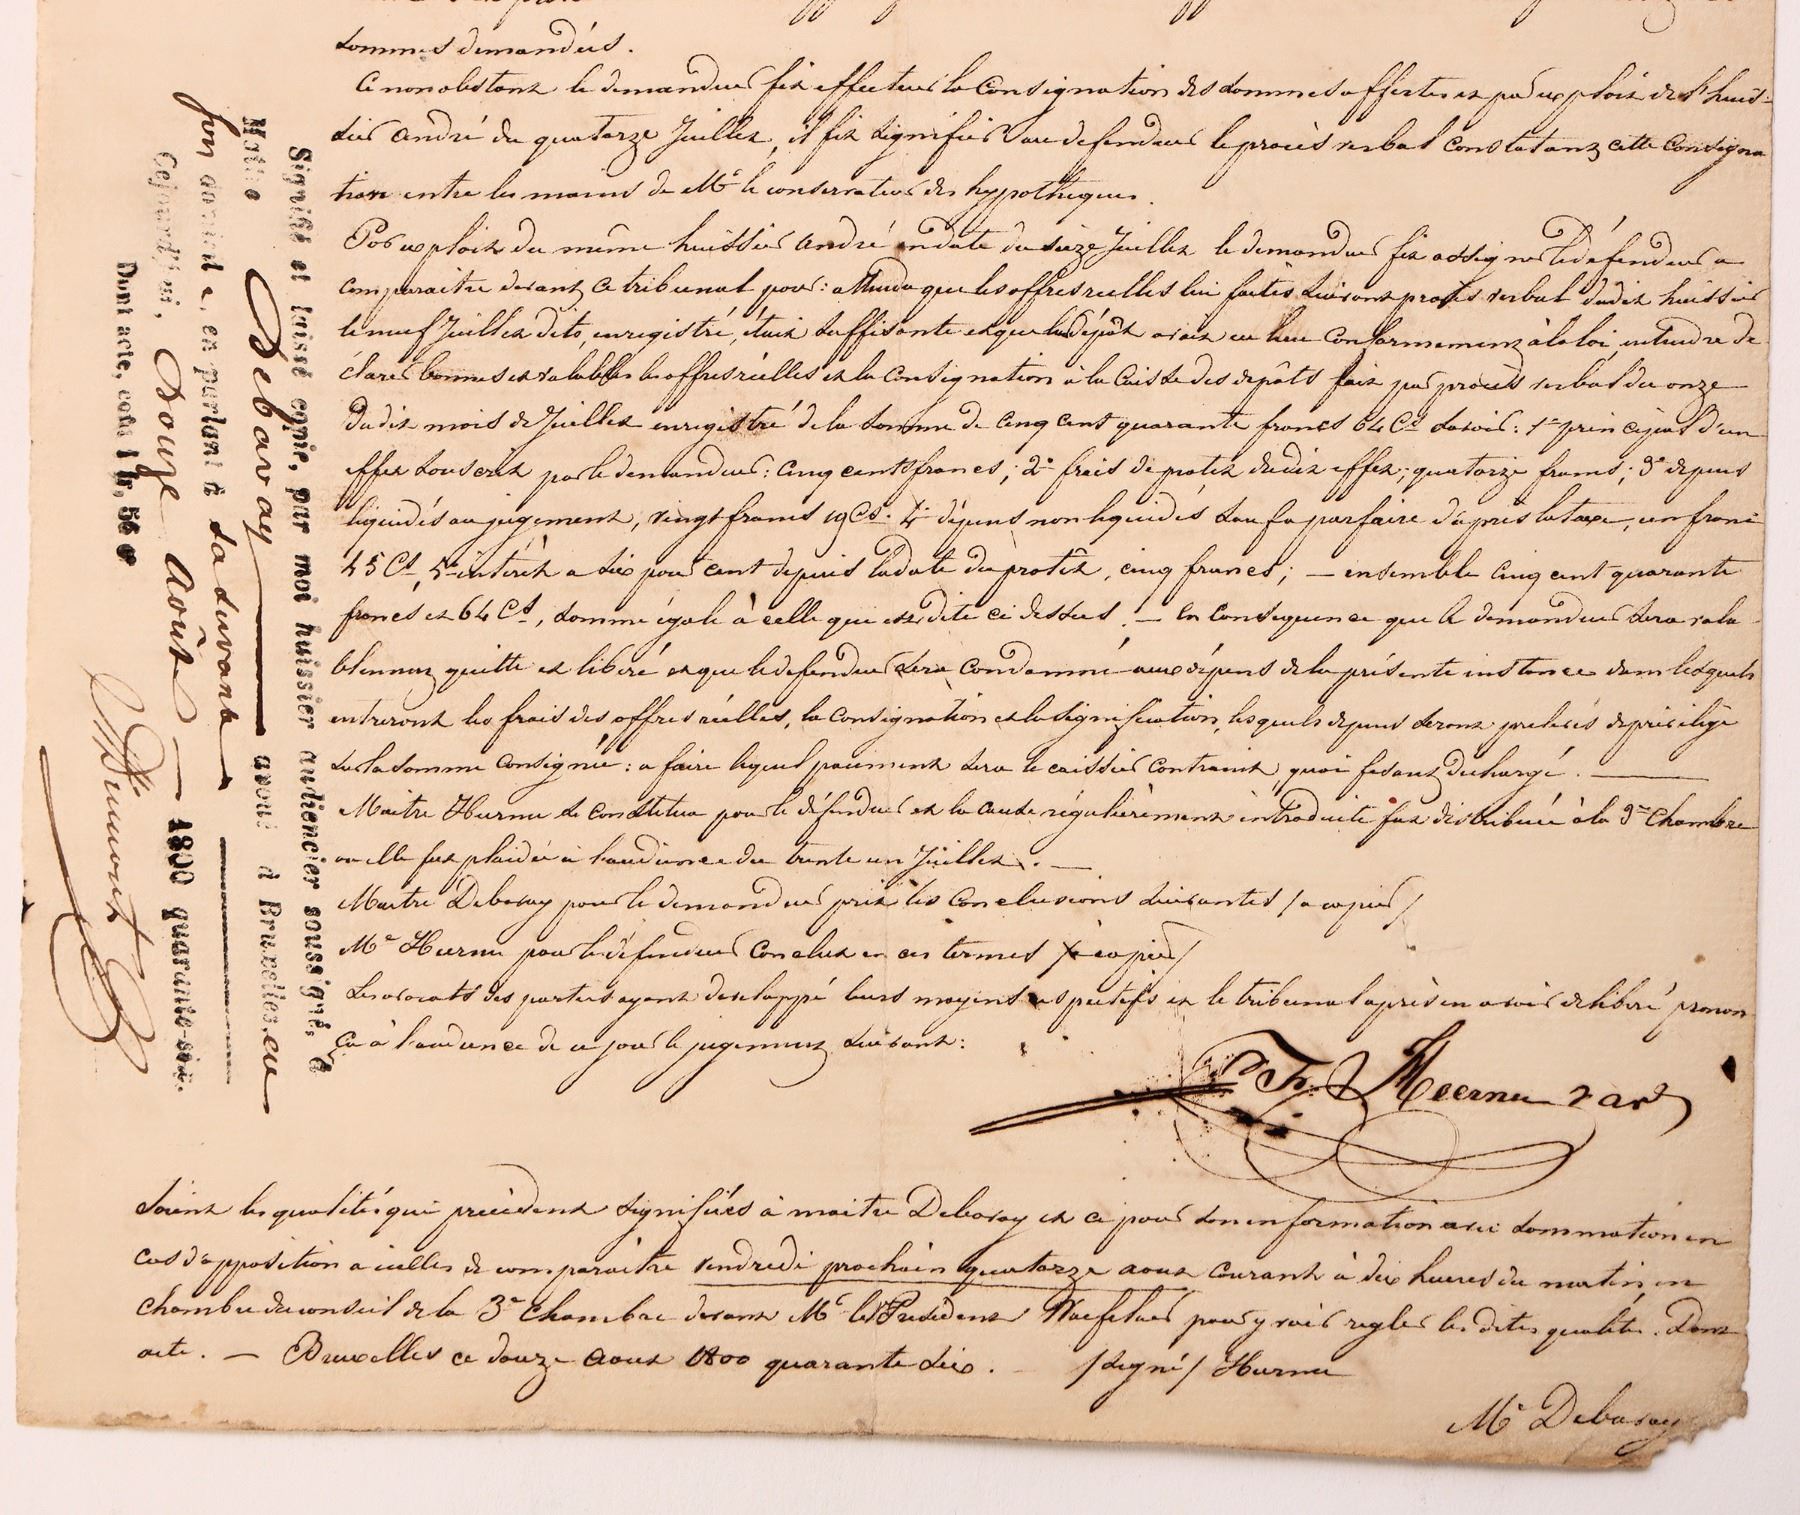 sommes demandées.
Ce nonobstant le demandeur fit effectuer la consignation des sommes offertes et par exploit de l'huis-
sier André du quatorze Juillet, il fit signifier au defendeur le procès verbal constatant cette consigna
tion entre les mains de Mr le conservateur des hypotheques.
Par exploit du même huissier André en date du seize Juillet le demandeur fit assigner le défendeur a
comparaitre devant ce tribunal pour: attendu que les offres reelles lui faites suivant procès verbal dudit huissier
le neuf Juillet dito, enregistré, était suffisante et que le dépôt avait eu lieu conformement à la loi, entendre dé
clarer bonnes et valables les offres réelles et la consignation à la caisse des depôts fait par procès verbal du onze
dudit mois de Juillet enregistré de la somme de cinq cent quarante francs 64 Cs savoir: 1° principal d'un
effet souscrit par le demandeur: cinq cents francs; 2° frais de protet dudit effet, quatorze francs; 3° depens
liquidés au jugement, vingt francs 19 Cs. 4° dépens non liquidés sauf a parfaire d'après la taxe, un franc
45 Cs, 5° intérêt a six pour cent depuis la date du protêt, cinq francs; — ensemble cinq cent quarante
francs et 64 Cs, somme égale à celle que est dite ci dessus. — En consequence que le demandeur sera vala
blement quitte et libéré et que le defendeur sera condamné aux dépens de la présente instance dans lesquels
entreront les frais des offres réelles, la consignation et la signification, lesquels depens seront prelevés de privilège
sur la somme consignée: a faire lequel paiement sera le caissier contraint, quoi fesant dechargé. —
Maitre Heernu se constitua pour le défendeur et la cause régulièrement introduite fut distribuée à la 3me chambre
ou elle fut plaidée à l'audience du trente un Juillet. —
Maitre Debavay pour le demandeur prit les conclusions suivantes /a copier/
Me Heernu pour le défendeur conclut en ces termes /a copier/
Les avocats des parties ayant developpé leurs moyens respectifs et le tribunal après en avoir delibéré pronon
ça à l'audience de ce jour le jugement suivant:
Heernu
Soient les qualités qui precèdent signifiées à maitre Debavay et ce pour son information avec sommation en
cas d'opposition a icelles de comparaitre vendredi prochain quatorze aout courant à dix heures du matin, en
chambre du conseil de la 3e chambre devant Mr le President pour y voir regler les dites qualités. Dont
acte. — Bruxelles ce douze aout 1800 quarante six. /signé/ Heernu
Me Debavay
Signifié et laissé copie, par moi huissier audiencier soussigné, à
Maître Debavay — avoué à Bruxelles, en
son domicile, en parlant à sa servante
Cejourd'hui, Douze Août — 1800 quarante-six.
Dont acte, coût 1 fr, 56 c